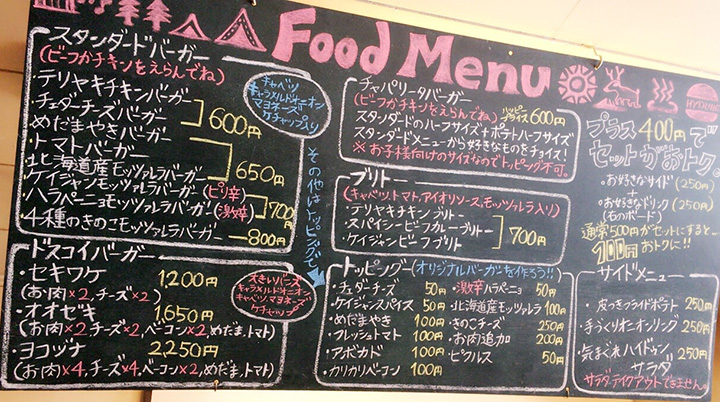 Food Menu
スタンダードバーガー
(ビーフかチキンをえらんでね)
・テリヤキチキンバーガー
・チェダーチーズバーガー
・めだまやきバーガー
600円
・トマトバーガー
・北海道産モッツァレラバーガー
650円
・ケイジャンモッツァレラバーガー(ピリ辛)
・ハラペーニョモッツァレラバーガー(激辛)
700円
・4種のきのこモッツァレラバーガー 800円
キャベツ
キャラメルドオニオン
マヨネーズ
ケチャップ入り
その他はトッピングで
ドスコイバーガー
・セキワケ 1,200円
(お肉×2,チーズ×2)
・オオゼキ 1,650円
(お肉×2,チーズ×2,ベーコン×2,めだま,トマト)
・ヨコヅナ 2,250円
(お肉×4,チーズ×4,ベーコン×2,めだま,トマト)
大きいバンズ
キャラメルドオニオン
キャベツ,マヨネーズ
ケチャップ
チャパリータバーガー
(ビーフかチキンをえらんでね) ハッピープライス 600円
スタンダードのハーフサイズ+ポテトハーフサイズ
スタンダードメニューから好きなものをチョイス!
※お子様向けのサイズなのでトッピング不可。
ブリトー
(キャベツ,トマト,アイオリソース,モッツァレラ入り)
・テリヤキチキンブリトー
・スパイシービーフカレーブリトー
・ケイジャンビーフブリトー
700円
トッピング(オリジナルバーガーを作ろう!!)
・チェダーチーズ 50円
・ケイジャンスパイス 50円
・めだまやき 100円
・フレッシュトマト 100円
・アボカド 100円
・カリカリベーコン 100円
・激辛ハラペーニョ 50円
・北海道産モッツァレラ 100円
・きのこチーズ 250円
・お肉追加 200円
・ピクルス 50円
HYDUN
プラス400円で
セットがおトク。
・お好きなサイド(250円)
+
・お好きなドリンク(250円)
(右のボード)
通常500円がセットにすると…
100円おトクに!!
サイドメニュー
・皮つきフライドポテト 250円
・手づくりオニオンリング 250円
・気まぐれハイドゥン サラダ 250円
サラダ,テイクアウトできません。